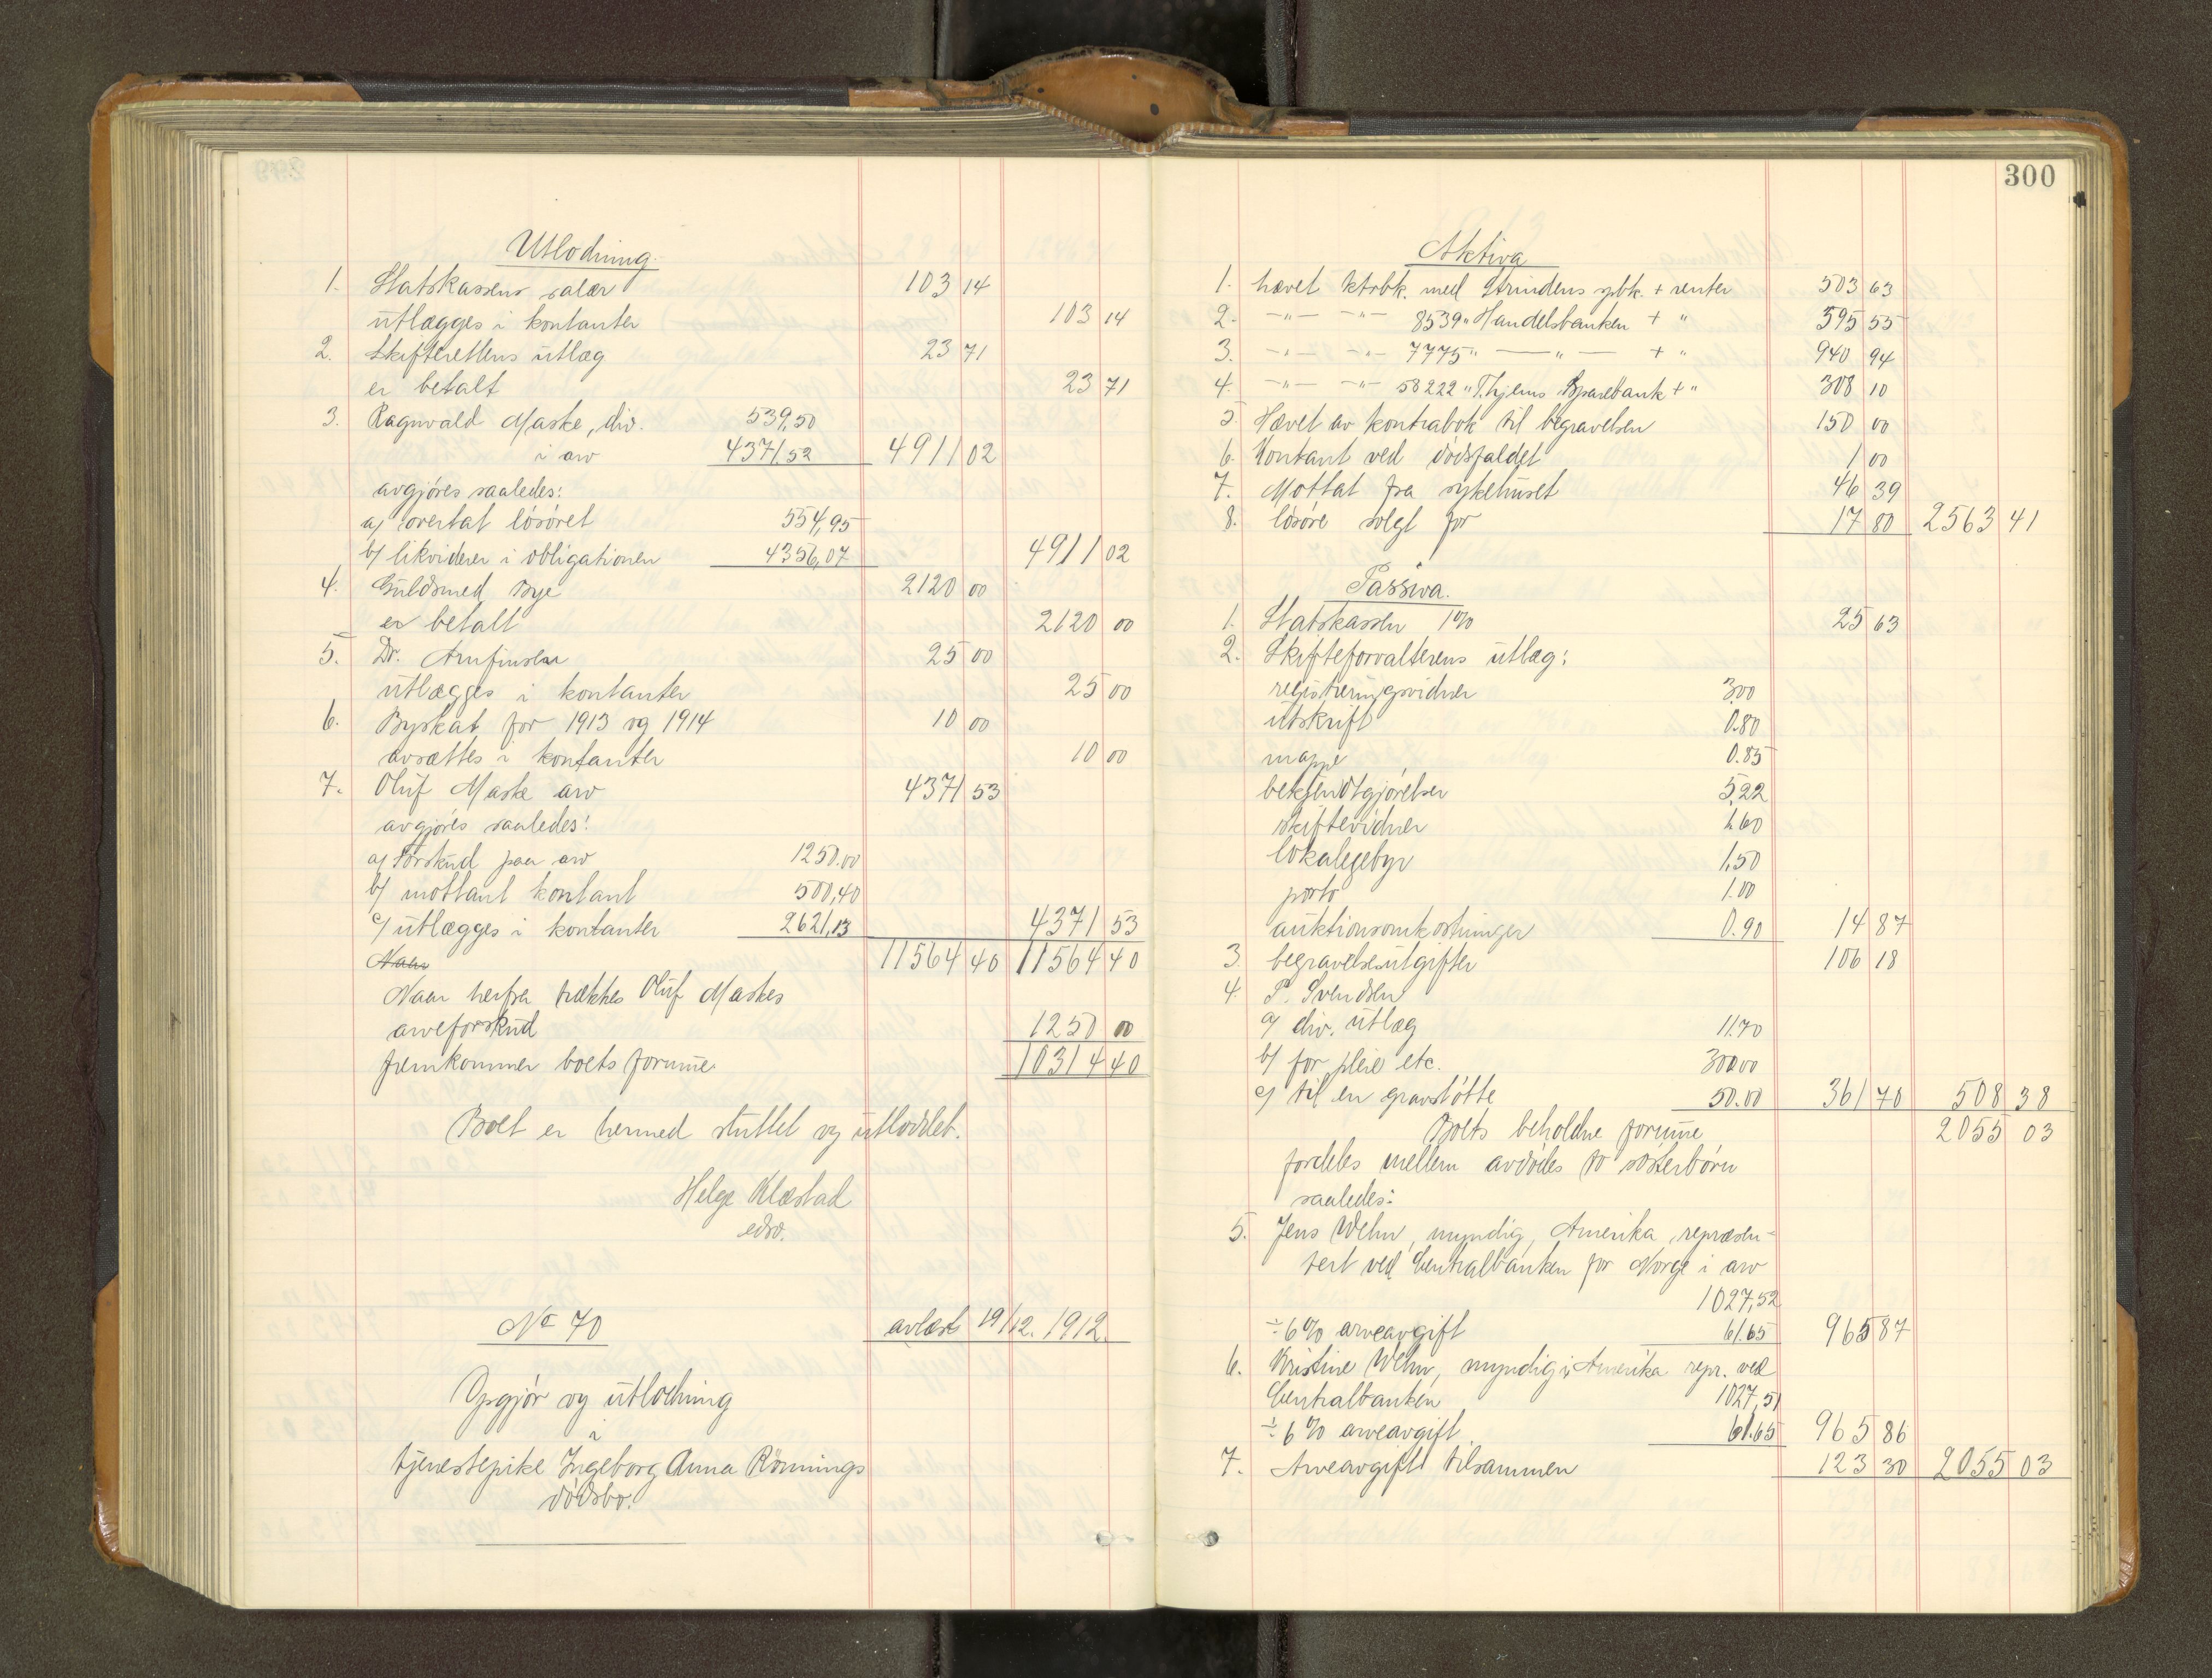 Utlodning.
1. Statskassens salær 103 14
utlægges i kontanter 103 14
2. Skifterettens utlæg 23 71
er betalt 23 71
3. Ragnvald Maske, div. 539,50
i arv 4371,52 4911 02
avgjøres saaledes:
a/ overtat løsøret 554,95
b/ likviderer i obligationer 4356,07 4911 02
4. Guldsmed Bye 2120 00
er betalt 2120 00
5. Dr. Arnfinsen 25 00
utlægges i kontanter 25 00
6. Byskat for 1913 og 1914 10 00
avsættes i kontanter 10 00
7. Oluf Maske arv 4371 53
avgjøres saaledes:
a/ forskud paa arv 1250.00
b/ mottatt kontant 500,40
c/ utlægges i kontanter 2621,13 4371 53
Naar 11564 40 11564 40
Naar herfra trækkes Oluf Maskes
arveforskud 1250 00
fremkommer boets formue 10314 40
Boet er hermed sluttet og utloddet.
Helge Klæstad
edsv.
No 70 avlæst 19/12. 1912.
Opgjør og utlodning
i
tjenestepike Ingeborg Anna Rönnings
dødsbo.
300
Aktiva
1. hævet ktrbk. med Strindens spbk. + renter 503 63
2. -"- -"- 8539 " Handelsbanken + " 595 55
3. -"- -"- 7775 " —"— + " 940 94
4. -"- -"- 58222 " T.hjems Sparebank + " 308 10
5. Hævet av kontrabok til begravelsen 150 00
6. Kontant ved dødsfaldet 1 00
7. Mottat fra sykehuset 46 39
8. løsøre solgt for 17 80 2563 41
Passiva.
1. Statskassen 1% 25 63
2. Skifteforvalterens utlæg:
registreringsvidner 3.00
utskrift 0.80
mappe 0.85
bekjendtgjørelser 5,22
skiftevidner 1.60
lokalegebyr 1,50
porto 1.00
auktionsomkostninger 0.90 14 87
3. begravelsesutgifter 106 18
4. P. Svendsen
a/ div. utlæg 11.70
b/ for pleie etc. 300.00
c/ til en gravstøtte 50.00 361 70 508 38
Boets beholdne formue 2055 03
fordeles mellem avdødes to søsterbørn
saaledes:
5. Jens Wehn, myndig, Amerika, repræsen-
tert ved Centralbanken for Norge i arv
1027,52
÷ 6% arveavgift 61.65 965 87
6. Kristine Wehn, myndig i Amerika repr. ved
Centralbanken 1027,51
÷ 6% arveavgift. 61.65 965 86
7. Arveavgift tilsammen 123 30 2055 03